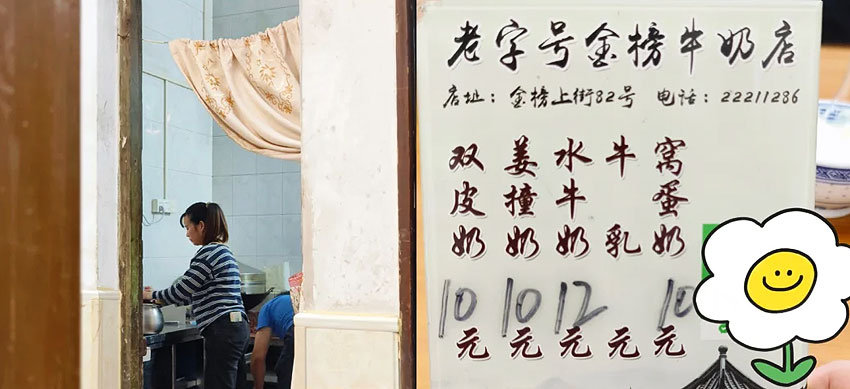 老字号金榜牛奶店
店址：金榜上街82号 电话：22211286
双皮奶 10元
姜撞奶 10元
水牛奶 12元
牛乳 元
窝蛋奶 10元